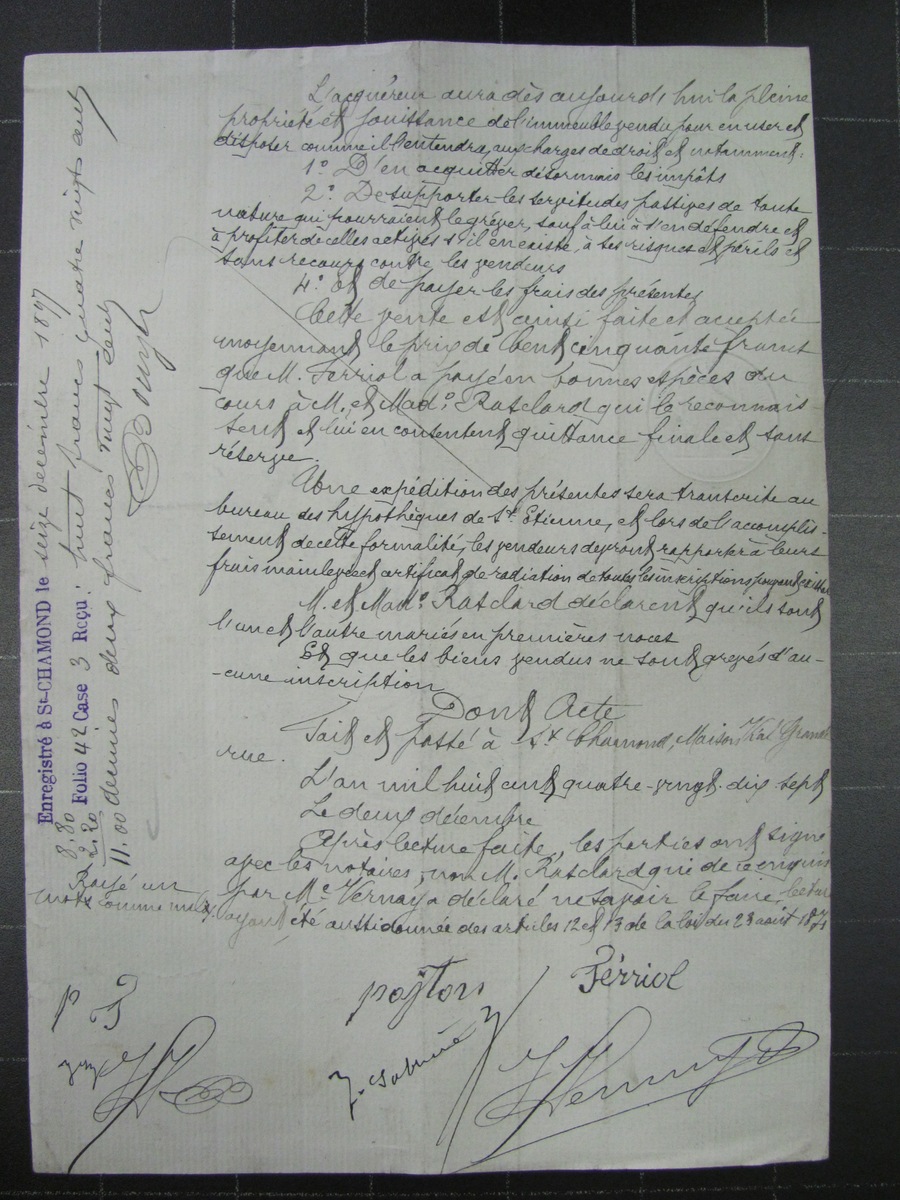 L'acquéreur aura dès aujourd'hui la pleine
propriété et jouissance de l'immeuble vendu pour en user et
disposer comme il l'entendra, aux charges de droit et notamment:
1° D'en acquitter désormais les impôts
2° De supporter les servitudes passives de toute
nature qui pourraient le gréver, sauf à lui à s'en défendre et
à profiter de celles actives s'il en existe, à ses risques et périls et
sans recours contre les vendeurs
4° Et de payer les frais des présentes
Cette vente est ainsi faite et acceptée
moyennant le prix de Cent cinquante francs
que M. Ferriol a payé en bonnes espèces du
cours à M. et Mad° Rasclard qui le reconnais-
sent et lui en consentent quittance finale et sans
réserve.
Une expédition des présentes sera transcrite au
bureau des hypothèques de St Etienne, et lors de l'accomplis-
sement de cette formalité, les vendeurs devront rapporter à leurs
frais mainlevée et certificat de radiation de toutes les inscriptions pouvant exister
M. et Mad° Rasclard déclarent qu'ils sont
l'un et l'autre mariés en premières noces
Et que les biens vendus ne sont grevés d'au-
-cune inscription
Dont Acte
Fait et passé à St Chamond, Maison Grande
rue.
L'an mil huit cent quatre-vingt-dix sept
Le deux décembre
Après lecture faite, les parties ont signé
avec les notaires, non M. Rasclard qui de ce enquis
par Me Vernay a déclaré ne savoir le faire, lecture
ayant été aussi donnée des articles 12 et 13 de la loi du 23 août 1871
Enregistré à St-CHAMOND le seize décembre 1897
Folio 42 Case 3 Reçu: huit francs quatre vingts cent
décimes deux francs vingt cent
8.80
2.20
11.00
rayé un
mot comme nul
P F
Ferriol